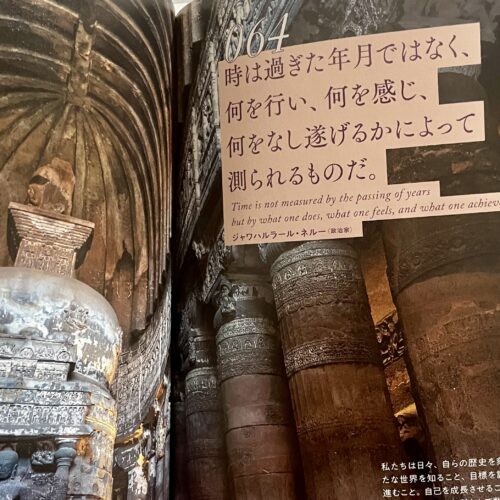 064
時は過ぎた年月ではなく、
何を行い、何を感じ、
何をなし遂げるかによって
測られるものだ。
Time is not measured by the passing of years
but by what one does, what one feels, and what one achieve
ジャワハルラール・ネルー（政治家）
私たちは日々、自らの歴史を
たな世界を知ること、目標を
進むこと。自己を成長させるこ